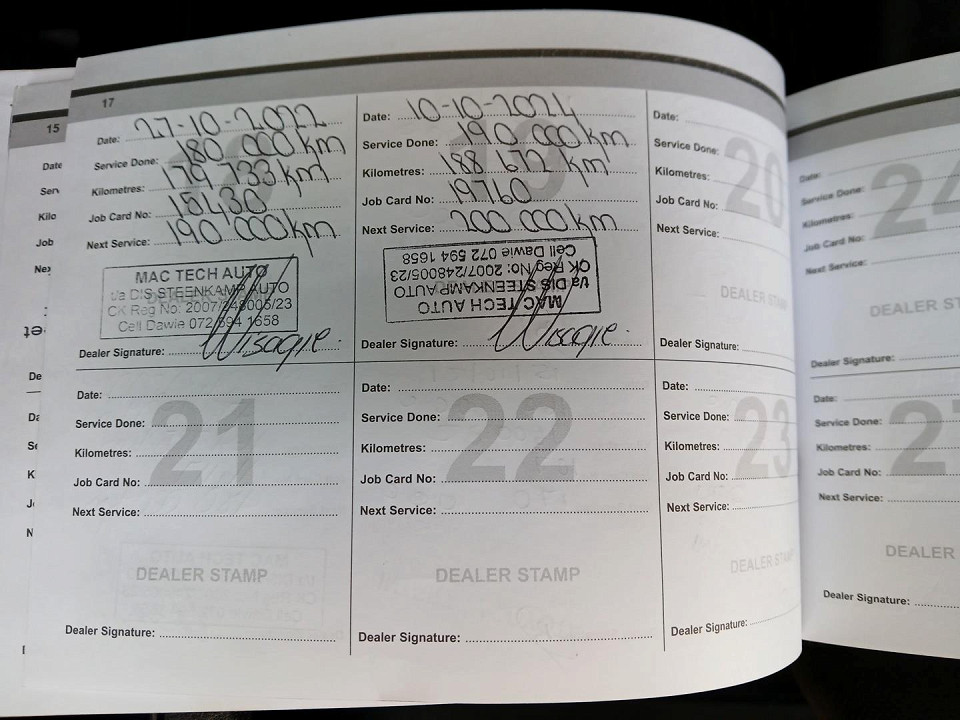 17
15
Date: 27-10-2022
Service Done: 180 000 km
Kilometres: 179 733 km
Job Card No: 15430
Next Service: 190 000 km
MAC TECH AUTO
t/a DIS STEENKAMP AUTO
CK Reg No: 2007/248005/23
Cell Dawie 072 594 1658
Dealer Signature:
Date: 10-10-2024
Service Done: 190 000 km
Kilometres: 188 672 km
Job Card No: 19760
Next Service: 200 000 km
MAC TECH AUTO
t/a DIS STEENKAMP AUTO
CK Reg No: 2007/248005/23
Cell Dawie 072 594 1658
Dealer Signature:
20
Date:
Service Done:
Kilometres:
Job Card No:
Next Service:
DEALER STAMP
Dealer Signature:
21
Date:
Service Done:
Kilometres:
Job Card No:
Next Service:
DEALER STAMP
Dealer Signature:
22
Date:
Service Done:
Kilometres:
Job Card No:
Next Service:
DEALER STAMP
Dealer Signature:
23
Date:
Service Done:
Kilometres:
Job Card No:
Next Service:
DEALER STAMP
Dealer Signature:
24
Date:
Service Done:
Kilometres:
Job Card No:
Next Service:
DEALER
Dealer Signature:
Date:
Service Done:
Kilometres:
Job Card No:
Next Service:
DEALER
Dealer Signature: